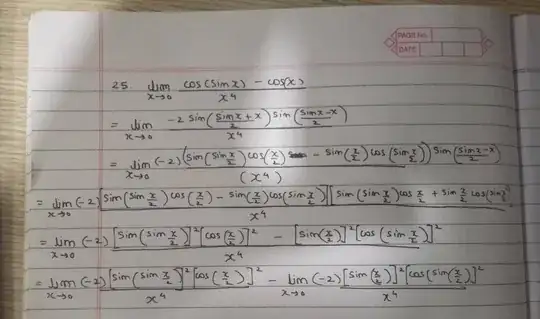 PAGE No.
DATE
25. lim x→0 cos(sin x) - cos(x) / x^4
= lim x→0 -2 sin((sin x + x)/2) sin((sin x - x)/2) / x^4
= lim x→0 (-2) (sin(sin x/2) cos(x/2) - sin(x/2) cos(sin x/2)) sin((sin x - x)/2) / (x^4)
= lim x→0 (-2) [sin(sin x/2) cos(x/2) - sin(x/2) cos(sin x/2)] [sin(sin x/2) cos x/2 + sin x/2 cos(sin x/2)] / x^4
= lim x→0 (-2) [sin(sin x/2)]^2 [cos(x/2)]^2 - [sin(x/2)]^2 [cos(sin x/2)]^2 / x^4
= lim x→0 (-2) [sin(sin x/2)]^2 [cos(x/2)]^2 / x^4 - lim x→0 (-2) [sin(x/2)]^2 [cos(sin(x/2))]^2 / x^4